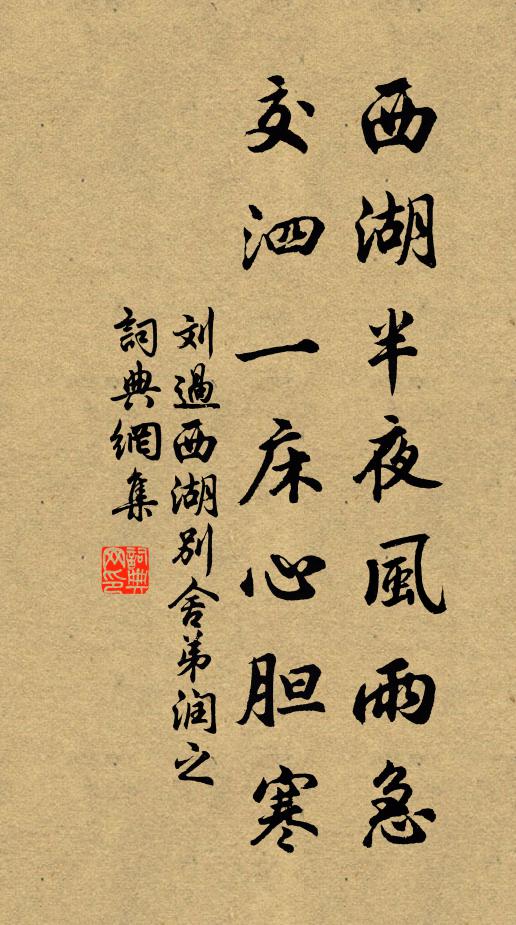 西湖半夜風雨急
交泗一床心胆寒
刘過西湖别舍弟润之
詞典網集
詞典网印